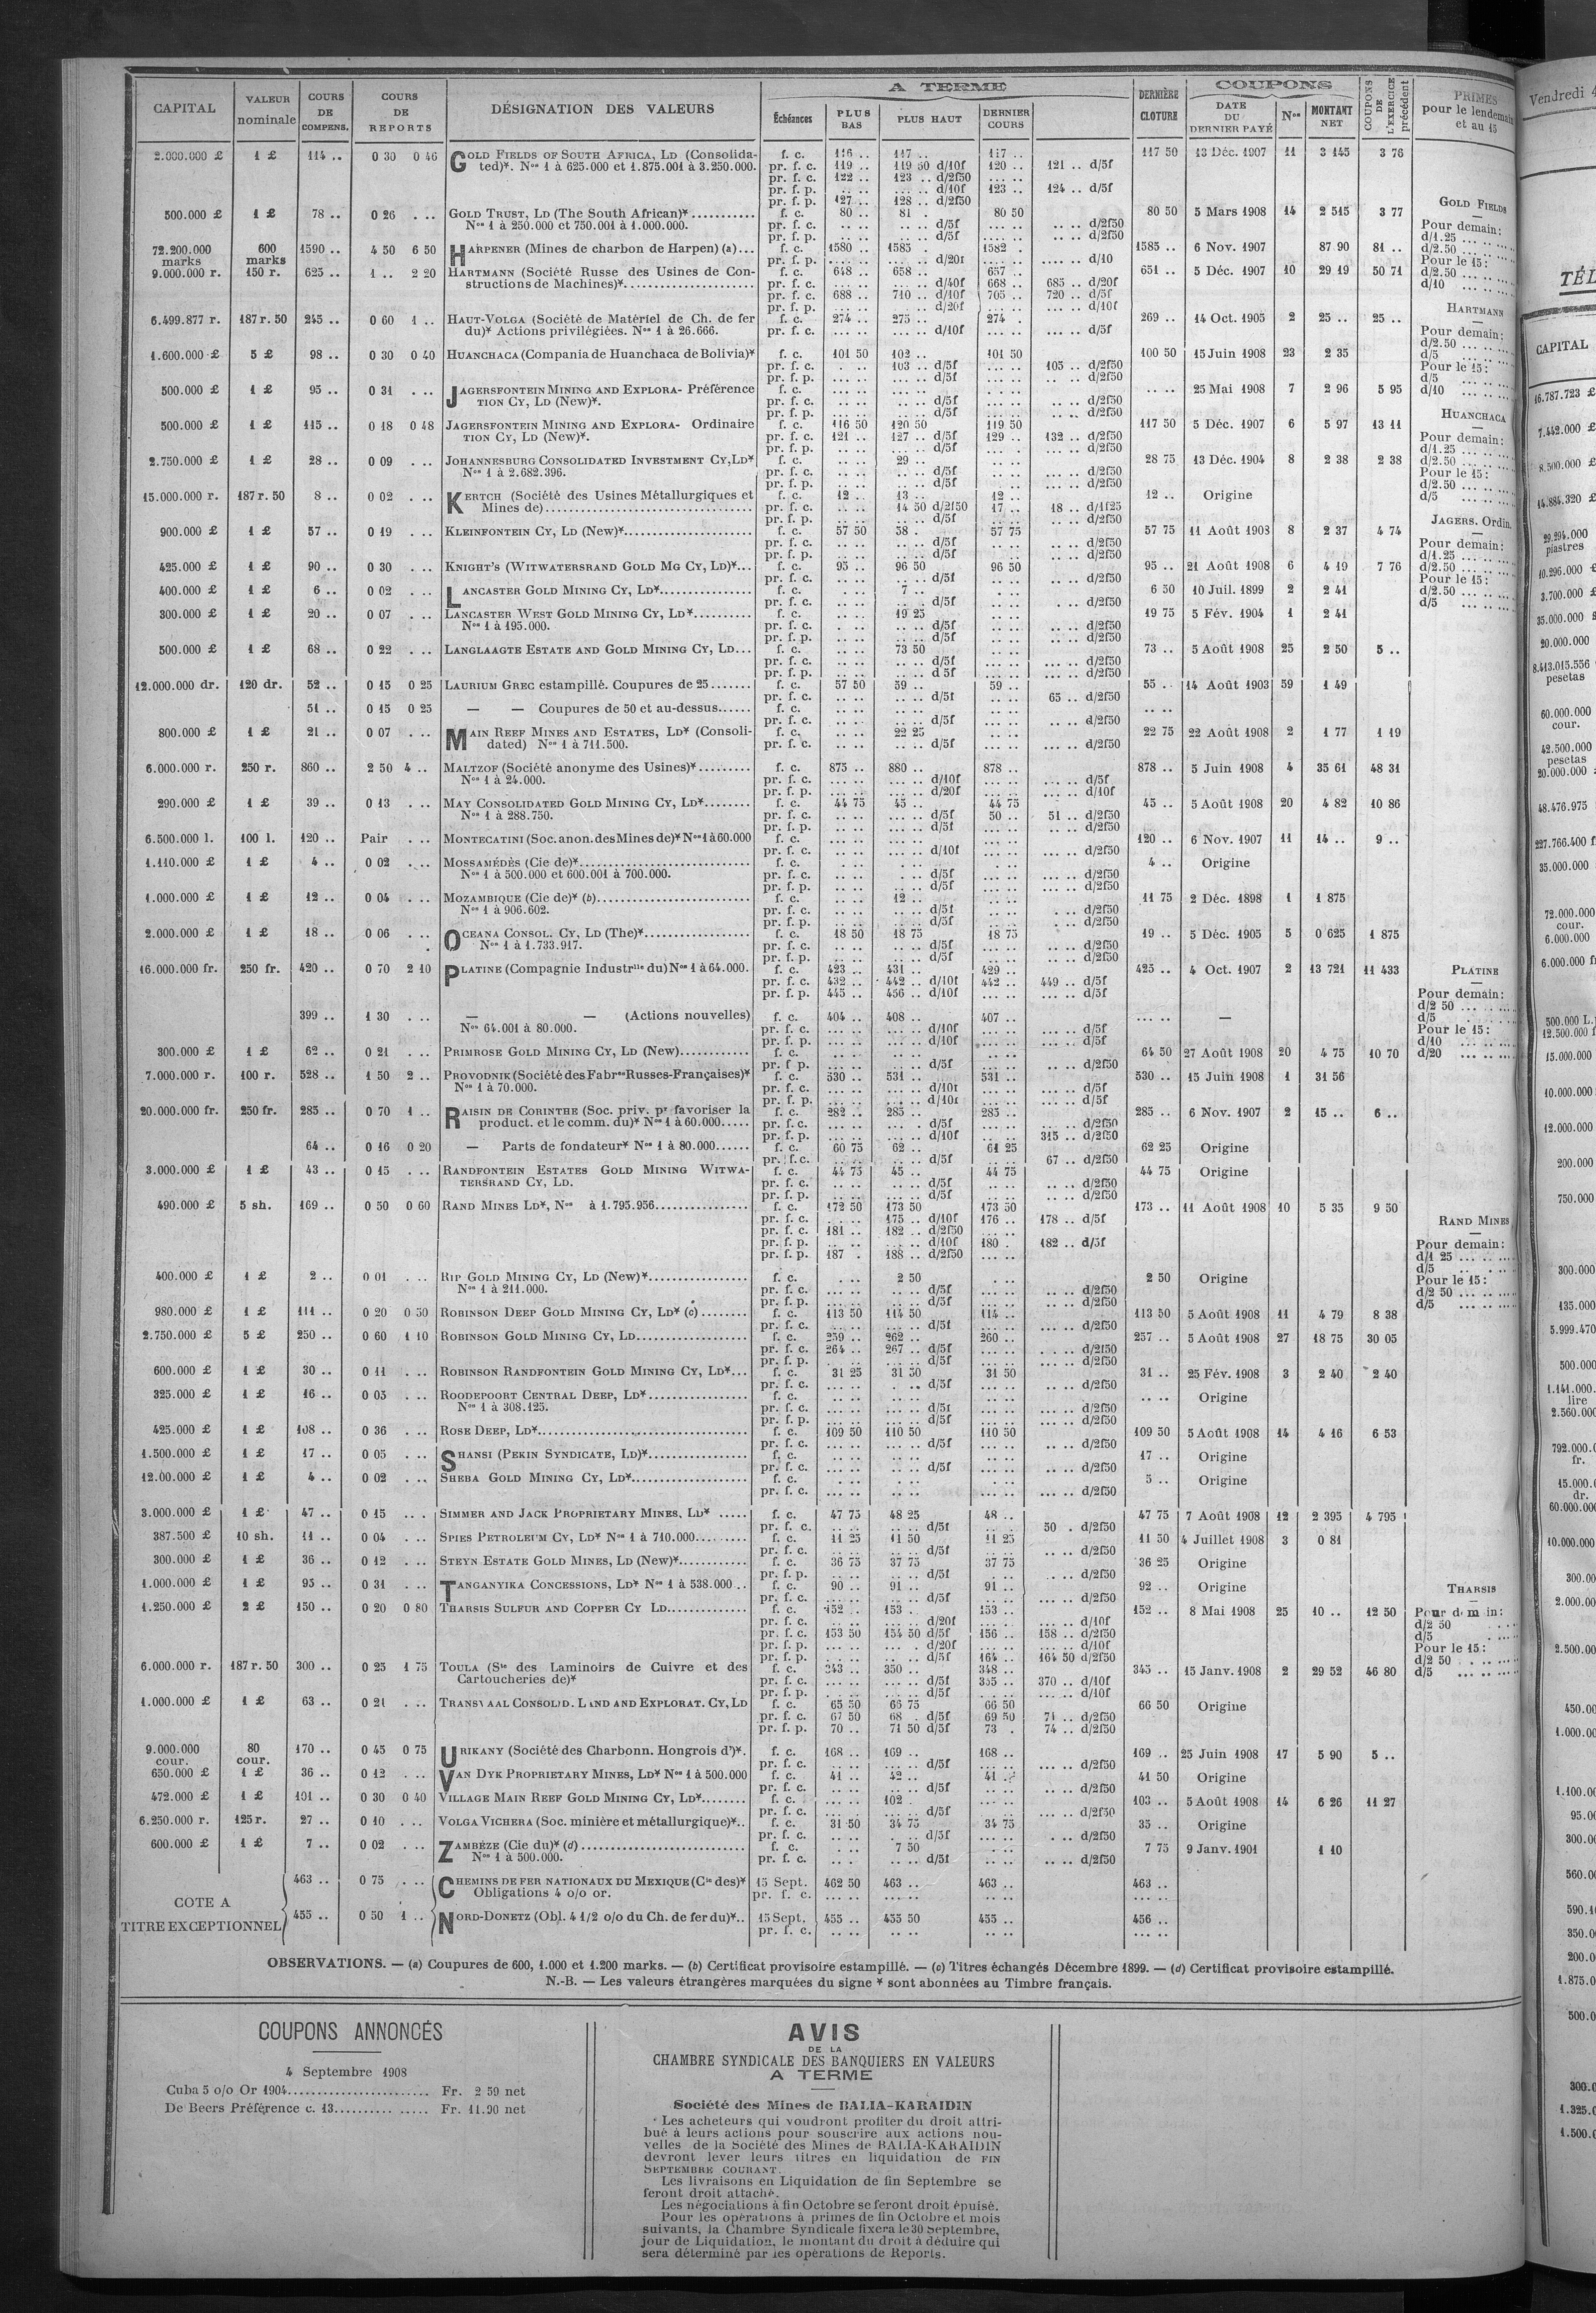 CAPITAL VALEUR nominale COURS DE COMPENS. COURS DE REPORTS DÉSIGNATION DES VALEURS A TERME DERNIÈRE CLOTURE COUPONS COUPONS DE L'EXERCICE précédent PRIMES pour le lendemain et au 15
Échéances PLUS BAS PLUS HAUT DERNIER COURS DATE DU DERNIER PAYÉ Nos MONTANT NET
2.000.000 £ 1 £ 114 .. 0 30 0 46 GOLD FIELDS OF SOUTH AFRICA, LD (Consolida- f. c. 116 .. 117 .. 117 .. 117 50 13 Déc. 1907 11 3 145 3 76
ted)*. Nos 1 à 625.000 et 1.875.001 à 3.250.000. pr. f. c. 119 .. 119 50 d/10f 120 .. 121 .. d/5f
pr. f. c. 122 .. 123 .. d/2f50
pr. f. p. d/10f 123 .. 124 .. d/5f
pr. f. p. 127 .. 128 .. d/2f50
500.000 £ 1 £ 78 .. 0 26 . .. GOLD TRUST, LD (The South African)* f. c. 80 .. 81 . 80 50 80 50 5 Mars 1908 14 2 515 3 77
Nos 1 à 250.000 et 750.001 à 1.000.000. pr. f. c. d/5f d/2f50
pr. f. p. d/5f d/2f50
72.200.000 marks 600 marks 1590 .. 4 50 6 50 HARPENER (Mines de charbon de Harpen) (a) f. c. 1580 .. 1585 . 1582 . 1585 .. 6 Nov. 1907 87 90 81 ..
pr. f. p. d/20f d/10
9.000.000 r. 150 r. 625 .. 1 .. 2 20 HARTMANN (Société Russe des Usines de Con- f. c. 648 .. 658 .. 657 .. 651 .. 5 Déc. 1907 10 29 19 50 71
structions de Machines)* pr. f. c. d/40f 668 .. 685 .. d/20f
pr. f. c. 688 .. 710 .. d/10f 705 .. 720 .. d/5f
pr. f. p. d/20f d/10f
6.499.877 r. 187 r. 50 245 .. 0 60 1 .. HAUT-VOLGA (Société de Matériel de Ch. de fer f. c. 274 .. 275 .. 274 . 269 .. 14 Oct. 1905 2 25 .. 25 ..
du)* Actions privilégiées. Nos 1 à 26.666. pr. f. c. d/10f d/5f
1.600.000 £ 5 £ 98 .. 0 30 0 40 HUANCHACA (Compania de Huanchaca de Bolivia)* f. c. 101 50 102 .. 101 50 100 50 15 Juin 1908 23 2 35
pr. f. c. 103 .. d/5f 105 .. d/2f50
pr. f. p. d/5f d/2f50
500.000 £ 1 £ 95 .. 0 31 . .. JAGERSFONTEIN MINING AND EXPLORA- Préférence f. c. 25 Mai 1908 7 2 96 5 95
TION CY, LD (New)*. pr. f. c. d/5f d/2f50
pr. f. p. d/5f d/2f50
500.000 £ 1 £ 115 .. 0 18 0 48 JAGERSFONTEIN MINING AND EXPLORA- Ordinaire f. c. 116 50 120 50 119 50 117 50 5 Déc. 1907 6 5 97 13 11
TION CY, LD (New)*. pr. f. c. 121 .. 127 .. d/5f 129 .. 132 .. d/2f50
pr. f. p. d/5f d/2f50
2.750.000 £ 1 £ 28 .. 0 09 . .. JOHANNESBURG CONSOLIDATED INVESTMENT CY, LD* f. c. 29 .. 28 75 13 Déc. 1904 8 2 38 2 38
Nos 1 à 2.682.396. pr. f. c. d/5f d/2f50
pr. f. p. d/5f d/2f50
15.000.000 r. 187 r. 50 8 .. 0 02 . .. KERTCH (Société des Usines Métallurgiques et f. c. 12 .. 13 .. 12 .. 12 .. Origine
Mines de) pr. f. c. 14 50 d/2f50 17 .. 18 .. d/1f25
pr. f. p. d/5f d/2f50
900.000 £ 1 £ 57 .. 0 19 . .. KLEINFONTEIN CY, LD (New)* f. c. 57 50 58 . 57 75 57 75 11 Août 1903 8 2 37 4 74
pr. f. c. d/5f d/2f50
pr. f. p. d/5f d/2f50
425.000 £ 1 £ 90 .. 0 30 . .. KNIGHT'S (WITWATERSRAND GOLD MG CY, LD)* f. c. 95 .. 96 50 96 50 95 .. 21 Août 1908 6 4 19 7 76
pr. f. c. d/5f d/2f50
400.000 £ 1 £ 6 .. 0 02 . .. LANCASTER GOLD MINING CY, LD* f. c. 7 .. 6 50 10 Juil. 1899 2 2 41
pr. f. c. d/5f d/2f50
300.000 £ 1 £ 20 .. 0 07 . .. LANCASTER WEST GOLD MINING CY, LD* f. c. 19 25 19 75 5 Fév. 1904 1 2 41
Nos 1 à 195.000. pr. f. c. d/5f d/2f50
pr. f. p. d/5f d/2f50
500.000 £ 1 £ 68 .. 0 22 . .. LANGLAAGTE ESTATE AND GOLD MINING CY, LD f. c. 73 50 73 .. 5 Août 1908 25 2 50 5 ..
pr. f. c. d/5f d/2f50
pr. f. p. d 5f d/2f50
12.000.000 dr. 120 dr. 52 .. 0 15 0 25 LAURIUM GREC estampillé. Coupures de 25 f. c. 57 50 59 .. 59 .. 55 .. 14 Août 1903 59 1 49
pr. f. c. d/5f 65 .. d/2f50
51 .. 0 15 0 25 — — Coupures de 50 et au-dessus f. c.
pr. f. c. d/5f d/2f50
800.000 £ 1 £ 21 .. 0 07 . .. MAIN REEF MINES AND ESTATES, LD* (Consoli- f. c. 22 25 22 75 22 Août 1908 2 1 77 1 19
dated) Nos 1 à 711.500. pr. f. c. d/5f d/2f50
6.000.000 r. 250 r. 860 .. 2 50 4 .. MALTZOF (Société anonyme des Usines)* f. c. 875 .. 880 .. 878 .. 878 .. 5 Juin 1908 4 35 61 48 31
Nos 1 à 24.000. pr. f. c. d/10f d/5f
pr. f. p. d/20f d/10f
290.000 £ 1 £ 39 .. 0 13 . .. MAY CONSOLIDATED GOLD MINING CY, LD* f. c. 44 75 45 .. 44 75 45 .. 5 Août 1908 20 4 82 10 86
Nos 1 à 288.750. pr. f. c. d/5f 50 .. 51 .. d/2f50
pr. f. p. d/5f d/2f50
6.500.000 l. 100 l. 120 .. Pair . .. MONTECATINI (Soc. anon. des Mines de)* Nos 1 à 60.000 f. c. 120 .. 6 Nov. 1907 11 14 .. 9 ..
pr. f. c. d/10f d/2f50
1.110.000 £ 1 £ 4 .. 0 02 . .. MOSSAMÉDÈS (Cie de)* f. c. 4 .. Origine
Nos 1 à 500.000 et 600.001 à 700.000. pr. f. c. d/5f d/2f50
pr. f. p. d/5f d/2f50
1.000.000 £ 1 £ 12 .. 0 04 . .. MOZAMBIQUE (Cie de)* (b) f. c. 12 .. 11 75 2 Déc. 1898 1 1 875
Nos 1 à 906.602. pr. f. c. d/5f d/2f50
pr. f. p. d/5f d/2f50
2.000.000 £ 1 £ 18 .. 0 06 . .. OCEANA CONSOL. CY, LD (The)* f. c. 18 50 18 75 18 75 19 .. 5 Déc. 1905 5 0 625 1 875
Nos 1 à 1.733.917. pr. f. c. d/5f d/2f50
pr. f. p. d/5f d/2f50
16.000.000 fr. 250 fr. 420 .. 0 70 2 10 PLATINE (Compagnie Industrlle du) Nos 1 à 64.000. f. c. 423 .. 431 .. 429 .. 425 .. 4 Oct. 1907 2 13 721 11 433
pr. f. c. 432 .. 442 .. d/10f 442 .. 449 .. d/5f
pr. f. p. 445 .. 456 .. d/10f d/5f
399 .. 1 30 . .. — — (Actions nouvelles) f. c. 404 .. 408 .. 407 .. —
Nos 64.001 à 80.000. pr. f. c. d/10f d/5f
pr. f. p. d/10f d/5f
300.000 £ 1 £ 62 .. 0 21 . .. PRIMROSE GOLD MINING CY, LD (New) f. c. 64 50 27 Août 1908 20 4 75 10 70
pr. f. p. d/5f d/2f50
7.000.000 r. 100 r. 528 .. 1 50 2 .. PROVODNIK (Société des Fabres Russes-Françaises)* f. c. 530 .. 531 .. 531 .. 530 .. 15 Juin 1908 1 31 56
Nos 1 à 70.000. pr. f. c. d/10f d/5f
pr. f. p. d/10f d/5f
20.000.000 fr. 250 fr. 285 .. 0 70 1 .. RAISIN DE CORINTHE (Soc. priv. pr favoriser la f. c. 282 .. 285 .. 285 .. 285 .. 6 Nov. 1907 2 15 .. 6 ..
product. et le comm. du)* Nos 1 à 60.000 pr. f. c. d/5f d/2f50
pr. f. p. d/10f 315 .. d/2f50
64 .. 0 16 0 20 — Parts de fondateur* Nos 1 à 80.000 f. c. 60 75 62 .. 61 25 62 25 Origine
pr. f. c. d/5f 67 .. d/2f50
3.000.000 £ 1 £ 43 .. 0 15 . .. RANDFONTEIN ESTATES GOLD MINING WITWA- f. c. 44 75 45 .. 44 75 44 75 Origine
TERSRAND CY, LD. pr. f. c. d/5f d/2f50
pr. f. p. d/5f d/2f50
490.000 £ 5 sh. 169 .. 0 50 0 60 RAND MINES LD*, Nos à 1.795.956 f. c. 172 50 173 50 173 50 173 .. 11 Août 1908 10 5 35 9 50
pr. f. c. 175 .. d/10f 176 .. 178 .. d/5f
pr. f. c. 181 .. 182 .. d/2f50
pr. f. p. d/10f 180 . 182 .. d/5f
pr. f. p. 187 . 188 .. d/2f50
400.000 £ 1 £ 2 .. 0 01 . .. RIP GOLD MINING CY, LD (New)* f. c. 2 50 2 50 Origine
Nos 1 à 211.000. pr. f. c. d/5f d/2f50
pr. f. p. d/5f d/2f50
980.000 £ 1 £ 111 .. 0 20 0 50 ROBINSON DEEP GOLD MINING CY, LD* (c) f. c. 113 50 114 50 114 .. 113 50 5 Août 1908 11 4 79 8 38
pr. f. c. d/5f d/2f50
2.750.000 £ 5 £ 250 .. 0 60 1 10 ROBINSON GOLD MINING CY, LD f. c. 259 .. 262 .. 260 .. 257 .. 5 Août 1908 27 18 75 30 05
pr. f. c. 264 .. 267 .. d/5f d/2f50
pr. f. p. d/5f d/2f50
600.000 £ 1 £ 30 .. 0 11 . .. ROBINSON RANDFONTEIN GOLD MINING CY, LD* f. c. 31 25 31 50 31 50 31 .. 25 Fév. 1908 3 2 40 2 40
pr. f. c. d/5f d/2f50
325.000 £ 1 £ 16 .. 0 05 . .. ROODEPOORT CENTRAL DEEP, LD* f. c. Origine
Nos 1 à 308.125. pr. f. c. d/5f d/2f50
pr. f. p. d/5f d/2f50
425.000 £ 1 £ 108 .. 0 36 . .. ROSE DEEP, LD* f. c. 109 50 110 50 110 50 109 50 5 Août 1908 14 4 16 6 53
pr. f. c. d/5f d/2f50
1.500.000 £ 1 £ 17 .. 0 05 . .. SHANSI (PEKIN SYNDICATE, LD)* f. c. 17 .. Origine
pr. f. c. d/5f d/2f50
12.00.000 £ 1 £ 4 .. 0 02 . .. SHEBA GOLD MINING CY, LD* f. c. 5 .. Origine
pr. f. c. d/2f50
3.000.000 £ 1 £ 47 .. 0 15 .. . SIMMER AND JACK PROPRIETARY MINES, LD* f. c. 47 75 48 25 48 .. 47 75 7 Août 1908 12 2 395 4 795
pr. f. c. d/5f 50 . d/2f50
387.500 £ 10 sh. 11 .. 0 04 . .. SPIES PETROLEUM CY, LD* Nos 1 à 710.000 f. c. 11 25 11 50 11 25 11 50 4 Juillet 1908 3 0 81
pr. f. c. d/5f d/2f50
300.000 £ 1 £ 36 .. 0 12 . .. STEYN ESTATE GOLD MINES, LD (New)* f. c. 36 75 37 75 37 75 36 25 Origine
pr. f. p. d/5f d/2f50
1.000.000 £ 1 £ 95 .. 0 31 . .. TANGANYIKA CONCESSIONS, LD* Nos 1 à 538.000 f. c. 90 .. 91 .. 91 .. 92 .. Origine
pr. f. c. d/5f d/2f50
1.250.000 £ 2 £ 150 .. 0 20 0 80 THARSIS SULFUR AND COPPER CY LD f. c. 152 .. 153 . 153 .. 152 .. 8 Mai 1908 25 10 .. 12 50
pr. f. c. d/20f d/10f
pr. f. c. 153 50 154 50 d/5f 156 .. 158 .. d/2f50
pr. f. p. d/20f d/10f
pr. f. p. d/5f 164 .. 164 50 d/2f50
6.000.000 r. 187 r. 50 300 .. 0 25 1 75 TOULA (Sté des Laminoirs de Cuivre et des f. c. 343 .. 350 .. 348 .. 345 .. 15 Janv. 1908 2 29 52 46 80
Cartoucheries de)* pr. f. c. d/5f 355 .. 370 .. d/10f
pr. f. p. d/5f d/10f
1.000.000 £ 1 £ 63 .. 0 21 . .. TRANSVAAL CONSOLID. LAND AND EXPLORAT. CY, LD f. c. 65 50 66 75 66 50 66 50 Origine
pr. f. c. 67 50 68 . d/5f 69 50 71 .. d/2f50
pr. f. p. 70 .. 71 50 d/5f 73 . 74 .. d/2f50
9.000.000 cour. 80 cour. 170 .. 0 45 0 75 URIKANY (Société des Charbonn. Hongrois d')*. f. c. 168 .. 169 .. 168 .. 169 .. 25 Juin 1908 17 5 90 5 ..
pr. f. c. d/5f d/2f50
650.000 £ 1 £ 36 .. 0 12 . .. VAN DYK PROPRIETARY MINES, LD* Nos 1 à 500.000 f. c. 41 .. 42 .. 41 .. 41 50 Origine
pr. f. c. d/5f d/2f50
472.000 £ 1 £ 101 .. 0 30 0 40 VILLAGE MAIN REEF GOLD MINING CY, LD* f. c. 102 .. 103 .. 5 Août 1908 14 6 26 11 27
pr. f. c. d/5f d/2f50
6.250.000 r. 125 r. 27 .. 0 10 . .. VOLGA VICHERA (Soc. minière et métallurgique)* f. c. 31 50 34 75 34 75 35 .. Origine
pr. f. c. d/5f d/2f50
600.000 £ 1 £ 7 .. 0 02 . .. ZAMBÈZE (Cie du)* (d) f. c. 7 50 7 75 9 Janv. 1901 1 10
Nos 1 à 500.000. pr. f. c. d/5f d/2f50
COTE A TITRE EXCEPTIONNEL
463 .. 0 75 . .. CHEMINS DE FER NATIONAUX DU MEXIQUE (Cie des)* 15 Sept. 462 50 463 .. 463 .. 463 ..
Obligations 4 o/o or. pr. f. c.
455 .. 0 50 1 .. NORD-DONETZ (Obl. 4 1/2 o/o du Ch. de fer du)* 15 Sept. 455 .. 455 50 455 .. 456 ..
pr. f. c.
GOLD FIELDS
Pour demain:
d/1.25
d/2.50
Pour le 15:
d/2.50
d/10
HARTMANN
Pour demain:
d/2.50
d/5
Pour le 15:
d/5
d/10
HUANCHACA
Pour demain:
d/1.25
d/2.50
Pour le 15:
d/2.50
d/5
JAGERS. Ordin.
Pour demain:
d/1.25
d/2.50
Pour le 15:
d/2.50
d/5
PLATINE
Pour demain:
d/2 50
d/5
Pour le 15:
d/10
d/20
RAND MINES
Pour demain:
d/1 25
d/5
Pour le 15:
d/2 50
d/5
THARSIS
Pour demain:
d/2 50
d/5
Pour le 15:
d/2 50
d/5
OBSERVATIONS. — (a) Coupures de 600, 1.000 et 1.200 marks. — (b) Certificat provisoire estampillé. — (c) Titres échangés Décembre 1899. — (d) Certificat provisoire estampillé.
N.-B. — Les valeurs étrangères marquées du signe * sont abonnées au Timbre français.
COUPONS ANNONCÉS
4 Septembre 1908
Cuba 5 o/o Or 1904 Fr. 2 59 net
De Beers Préférence c. 13 Fr. 11.90 net
AVIS
DE LA
CHAMBRE SYNDICALE DES BANQUIERS EN VALEURS
A TERME
Société des Mines de BALIA-KARAIDIN
Les acheteurs qui voudront profiter du droit attri-
bué à leurs actions pour souscrire aux actions nou-
velles de la Société des Mines de BALIA-KARAIDIN
devront lever leurs titres en liquidation de FIN
SEPTEMBRE COURANT.
Les livraisons en Liquidation de fin Septembre se
feront droit attaché.
Les négociations à fin Octobre se feront droit épuisé.
Pour les opérations à primes de fin Octobre et mois
suivants, la Chambre Syndicale fixera le 30 Septembre,
jour de Liquidation, le montant du droit à déduire qui
sera déterminé par les opérations de Reports.
Vendredi 4
CAPITAL
16.787.723 £
7.442.000 £
8.500.000 £
14.884.320 £
29.294.000
piastres
10.296.000 £
3.700.000 £
35.000.000
20.000.000
8.413.015.556
pesetas
60.000.000
cour.
42.500.000
pesetas
20.000.000
48.476.975
227.766.400 f
35.000.000
72.000.000
cour.
6.000.000
6.000.000 f
500.000 L.
12.500.000
15.000.000
10.000.000
12.000.000
200.000
750.000
300.000
435.000
5.999.470
500.000
1.141.000
lire
2.560.000